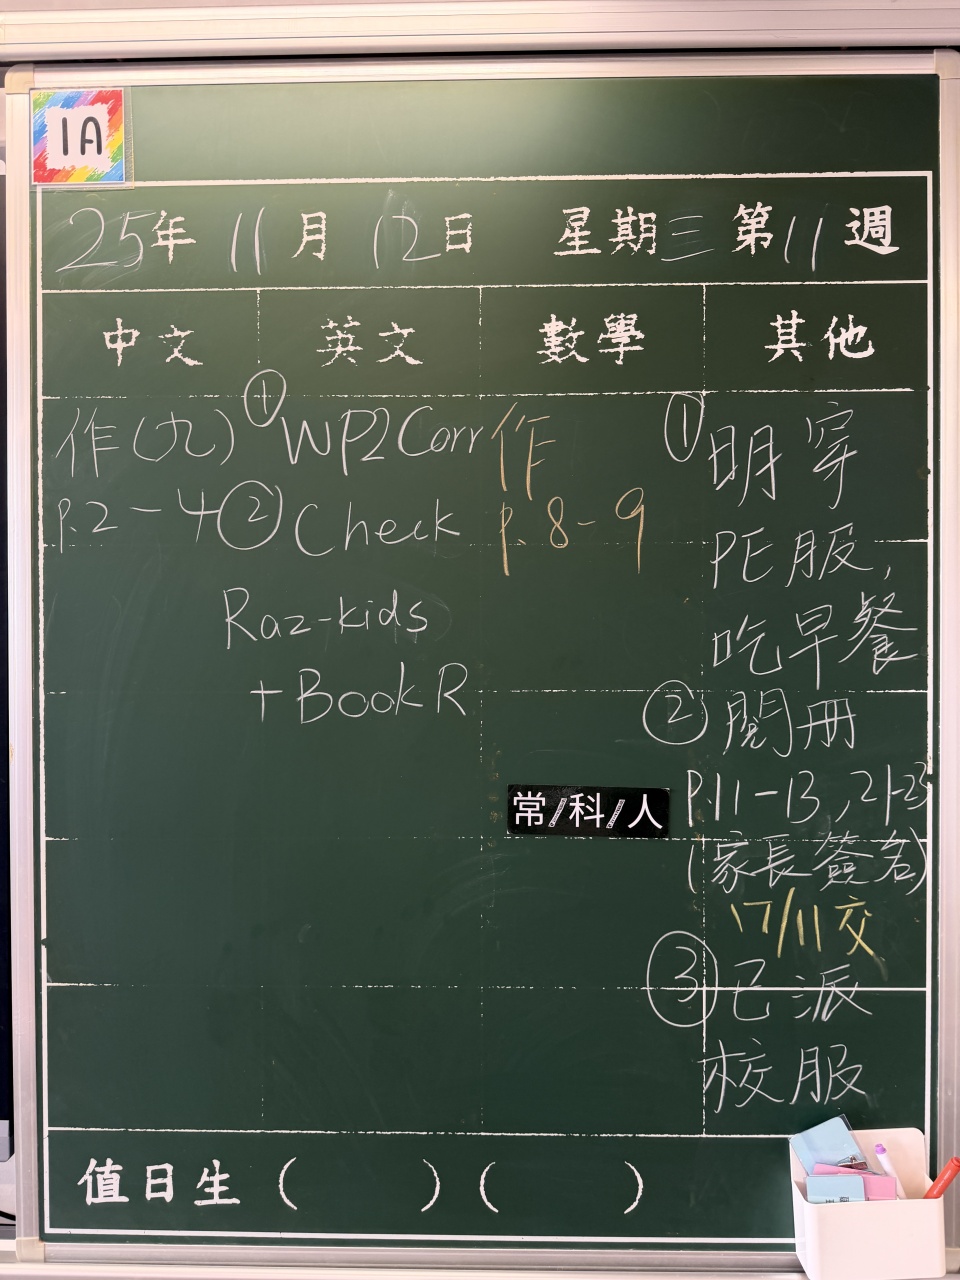 1A
25年11月12日 星期三 第11週
中文 英文 數學 其他
作(九)
p.2-4
① WP2 Corr
② Check
Raz-kids
+ Book R
作
p.8-9
① 明穿
PE服,
吃早餐
② 閱冊
P.11-13, 21-23
(家長簽名)
17/11交
③ 已派
校服
常/科/人
值日生 ( ) ( )